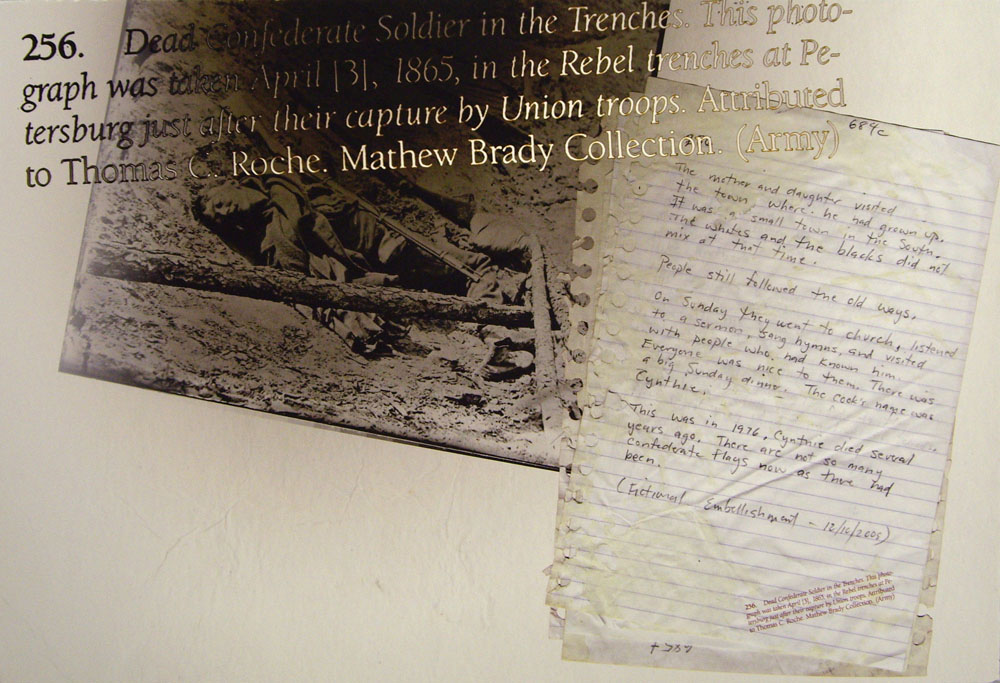 256. Dead Confederate Soldier in the Trenches. This photo-
graph was taken April [3], 1865, in the Rebel trenches at Pe-
tersburg just after their capture by Union troops. Attributed
to Thomas C. Roche. Mathew Brady Collection. (Army)
684c
The mother and daughter visited
the town where he had grown up.
It was a small town in the South.
The whites and the blacks did not
mix at that time.
People still followed the old ways.
On Sunday they went to church, listened
to a sermon, sang hymns, and visited
with people who had known him.
Everyone was nice to them. There was
a big Sunday dinner. The cook's name was
Cynthie.
This was in 1976. Cynthie died several
years ago. There are not so many
confederate flags now as there had
been.
(Fictional Embellishment - 12/10/2005)
256. Dead Confederate Soldier in the Trenches. This photo-
graph was taken April [3], 1865, in the Rebel trenches at Pe-
tersburg just after their capture by Union troops. Attributed
to Thomas C. Roche. Mathew Brady Collection. (Army)